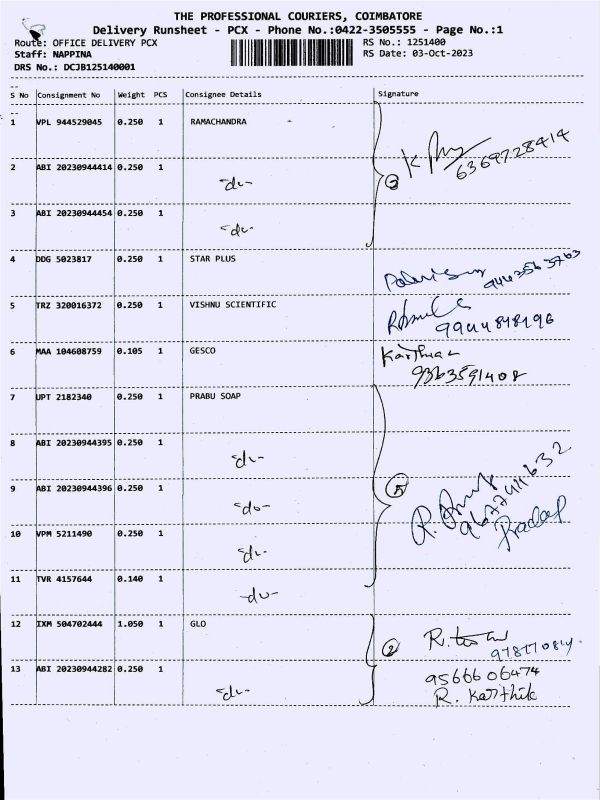 THE PROFESSIONAL COURIERS, COIMBATORE
Delivery Runsheet - PCX - Phone No.:0422-3505555 - Page No.:1
Route: OFFICE DELIVERY PCX RS No.: 1251400
Staff: NAPPINA RS Date: 03-Oct-2023
DRS No.: DCJB125140001
S No Consignment No Weight PCS Consignee Details Signature
1 VPL 944529045 0.250 1 RAMACHANDRA
2 ABI 20230944414 0.250 1 -do-
③ 6369728414
3 ABI 20230944454 0.250 1 -do-
4 DDG 5023817 0.250 1 STAR PLUS
5 TRZ 320016372 0.250 1 VISHNU SCIENTIFIC 9944848196
6 MAA 104608759 0.105 1 GESCO Karthik
9363591408
7 UPT 2182340 0.250 1 PRABU SOAP
8 ABI 20230944395 0.250 1 -do-
9 ABI 20230944396 0.250 1 -do- ⑤
10 VPM 5211490 0.250 1 -do- Pradap
11 TVR 4157644 0.140 1 -do-
12 IXM 504702444 1.050 1 GLO ②
13 ABI 20230944282 0.250 1 -do- 9566606474
R. Karthik